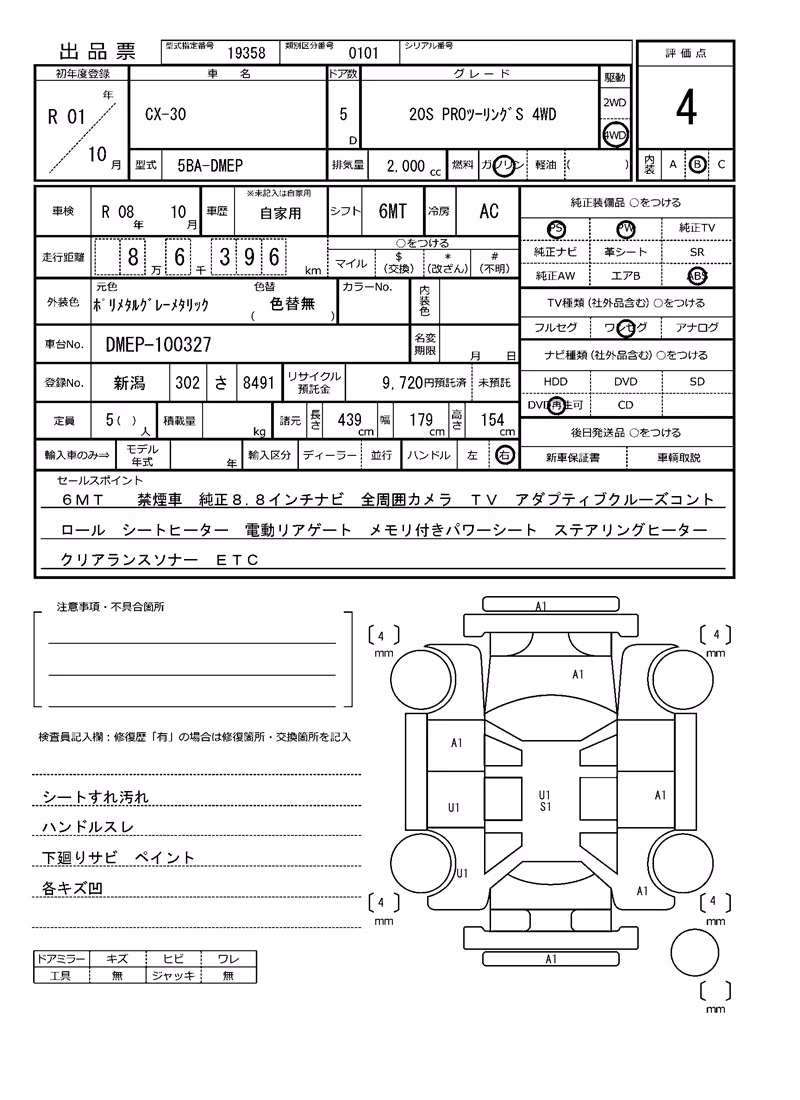 出品票
型式指定番号 19358 類別区分番号 0101 シリアル番号
評価点
4
内装 A B C
初年度登録 車名 ドア数 グレード 駆動
R 01 年 10 月
CX-30 5 D 20S PROツーリングS 4WD
2WD
4WD
型式 5BA-DMEP 排気量 2,000 cc 燃料 ガソリン 軽油 ( )
車検 R 08 年 10 月 車歴 ※未記入は自家用 自家用 シフト 6MT 冷房 AC
走行距離 8 万 6 千 3 9 6 km
○をつける
マイル $ (交換) * (改ざん) # (不明)
外装色 元色 ポリメタルグレーメタリック 色替 ( 色替無 ) カラーNo. 内装色
車台No. DMEP-100327 名変期限 月 日
登録No. 新潟 302 さ 8491 リサイクル預託金 9,720円預託済 未預託
定員 5( ) 人 積載量 kg 諸元 長さ 439 cm 幅 179 cm 高さ 154 cm
輸入車のみ⇒ モデル年式 年 輸入区分 ディーラー 並行 ハンドル 左 右
純正装備品 ○をつける
PS PW 純正TV
純正ナビ 革シート SR
純正AW エアB ABS
TV種類(社外品含む)○をつける
フルセグ ワンセグ アナログ
ナビ種類(社外品含む)○をつける
HDD DVD SD
DVD再生可 CD
後日発送品 ○をつける
新車保証書 車輌取説
セールスポイント
6MT 禁煙車 純正8.8インチナビ 全周囲カメラ TV アダプティブクルーズコント
ロール シートヒーター 電動リアゲート メモリ付きパワーシート ステアリングヒーター
クリアランスソナー ETC
注意事項・不具合箇所
検査員記入欄：修復歴「有」の場合は修復箇所・交換箇所を記入
シートすれ汚れ
ハンドルスレ
下廻りサビ ペイント
各キズ凹
ドアミラー キズ ヒビ ワレ
工具 無 ジャッキ 無
A1
[ 4 ] mm
[ 4 ] mm
A1
A1
U1
U1
S1
A1
U1
A1
[ 4 ] mm
[ 4 ] mm
A1
[ ] mm